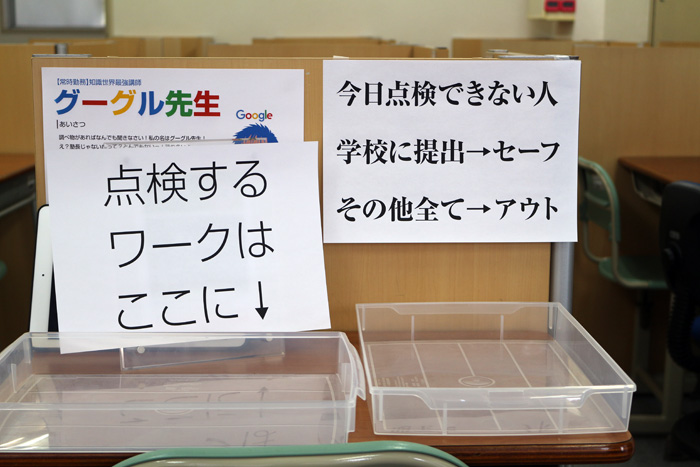 【常時勤務】知識世界最強講師
グーグル先生
あいさつ
Google
調べ物があればなんでも聞きなさい！私の名はグーグル先生！
点検する
ワークは
ここに↓
今日点検できない人
学校に提出→セーフ
その他全て→アウト